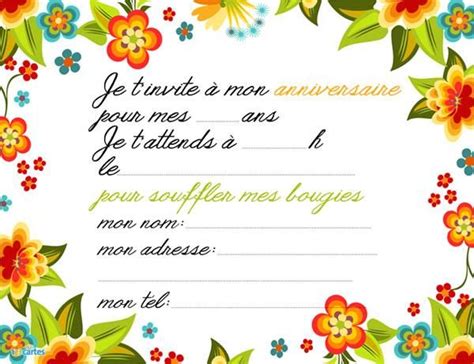 Je t'invite à mon anniversaire
pour mes ans
Je t'attends à h
le
pour souffler mes bougies
mon nom:
mon adresse:
mon tel:
cartes